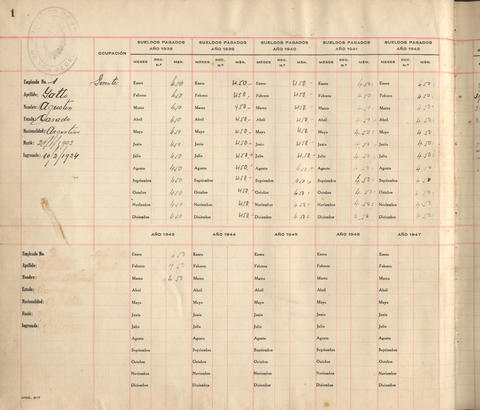 1
OCUPACIÓN
SUELDOS PAGADOS AÑO 1938 SUELDOS PAGADOS AÑO 1939 SUELDOS PAGADOS AÑO 1940 SUELDOS PAGADOS AÑO 1941 SUELDOS PAGADOS AÑO 1942
MESES REC. N.º MEN. MESES REC. N.º MEN. MESES REC. N.º MEN. MESES REC. N.º MEN. MESES REC. N.º MEN.
Empleado No. 1 Gerente Enero 450 Enero 450 Enero 450 Enero 450 Enero 450
Apellido: Gatto Febrero 450 Febrero 450 Febrero 450 Febrero 450 Febrero 450
Nombre: Agustin Marzo 450 Marzo 450 Marzo 450 Marzo 450 Marzo 450
Estado: Casado Abril 450 Abril 450 Abril 450 Abril 450 Abril 450
Nacionalidad: Argentino Mayo 450 Mayo 450 Mayo 450 Mayo 450 Mayo 450
Nació: Junio 450 Junio 450 Junio 450 Junio 450 Junio 450
Ingresado: 10/2/1924 Julio 450 Julio 450 Julio 450 Julio 450 Julio 450
Agosto 450 Agosto 450 Agosto 450 Agosto 450 Agosto 450
Septiembre 450 Septiembre 450 Septiembre 450 Septiembre 450 Septiembre 450
Octubre 450 Octubre 450 Octubre 450 Octubre 450 Octubre 450
Noviembre 450 Noviembre 450 Noviembre 450 Noviembre 450 Noviembre 450
Diciembre 450 Diciembre 450 Diciembre 450 Diciembre 450 Diciembre 450
AÑO 1943 AÑO 1944 AÑO 1945 AÑO 1946 AÑO 1947
Empleado No. Enero 450 Enero Enero Enero Enero
Apellido: Febrero 450 Febrero Febrero Febrero Febrero
Nombre: Marzo 450 Marzo Marzo Marzo Marzo
Estado: Abril Abril Abril Abril Abril
Nacionalidad: Mayo Mayo Mayo Mayo Mayo
Nació: Junio Junio Junio Junio Junio
Ingresado: Julio Julio Julio Julio Julio
Agosto Agosto Agosto Agosto Agosto
Septiembre Septiembre Septiembre Septiembre Septiembre
Octubre Octubre Octubre Octubre Octubre
Noviembre Noviembre Noviembre Noviembre Noviembre
Diciembre Diciembre Diciembre Diciembre Diciembre